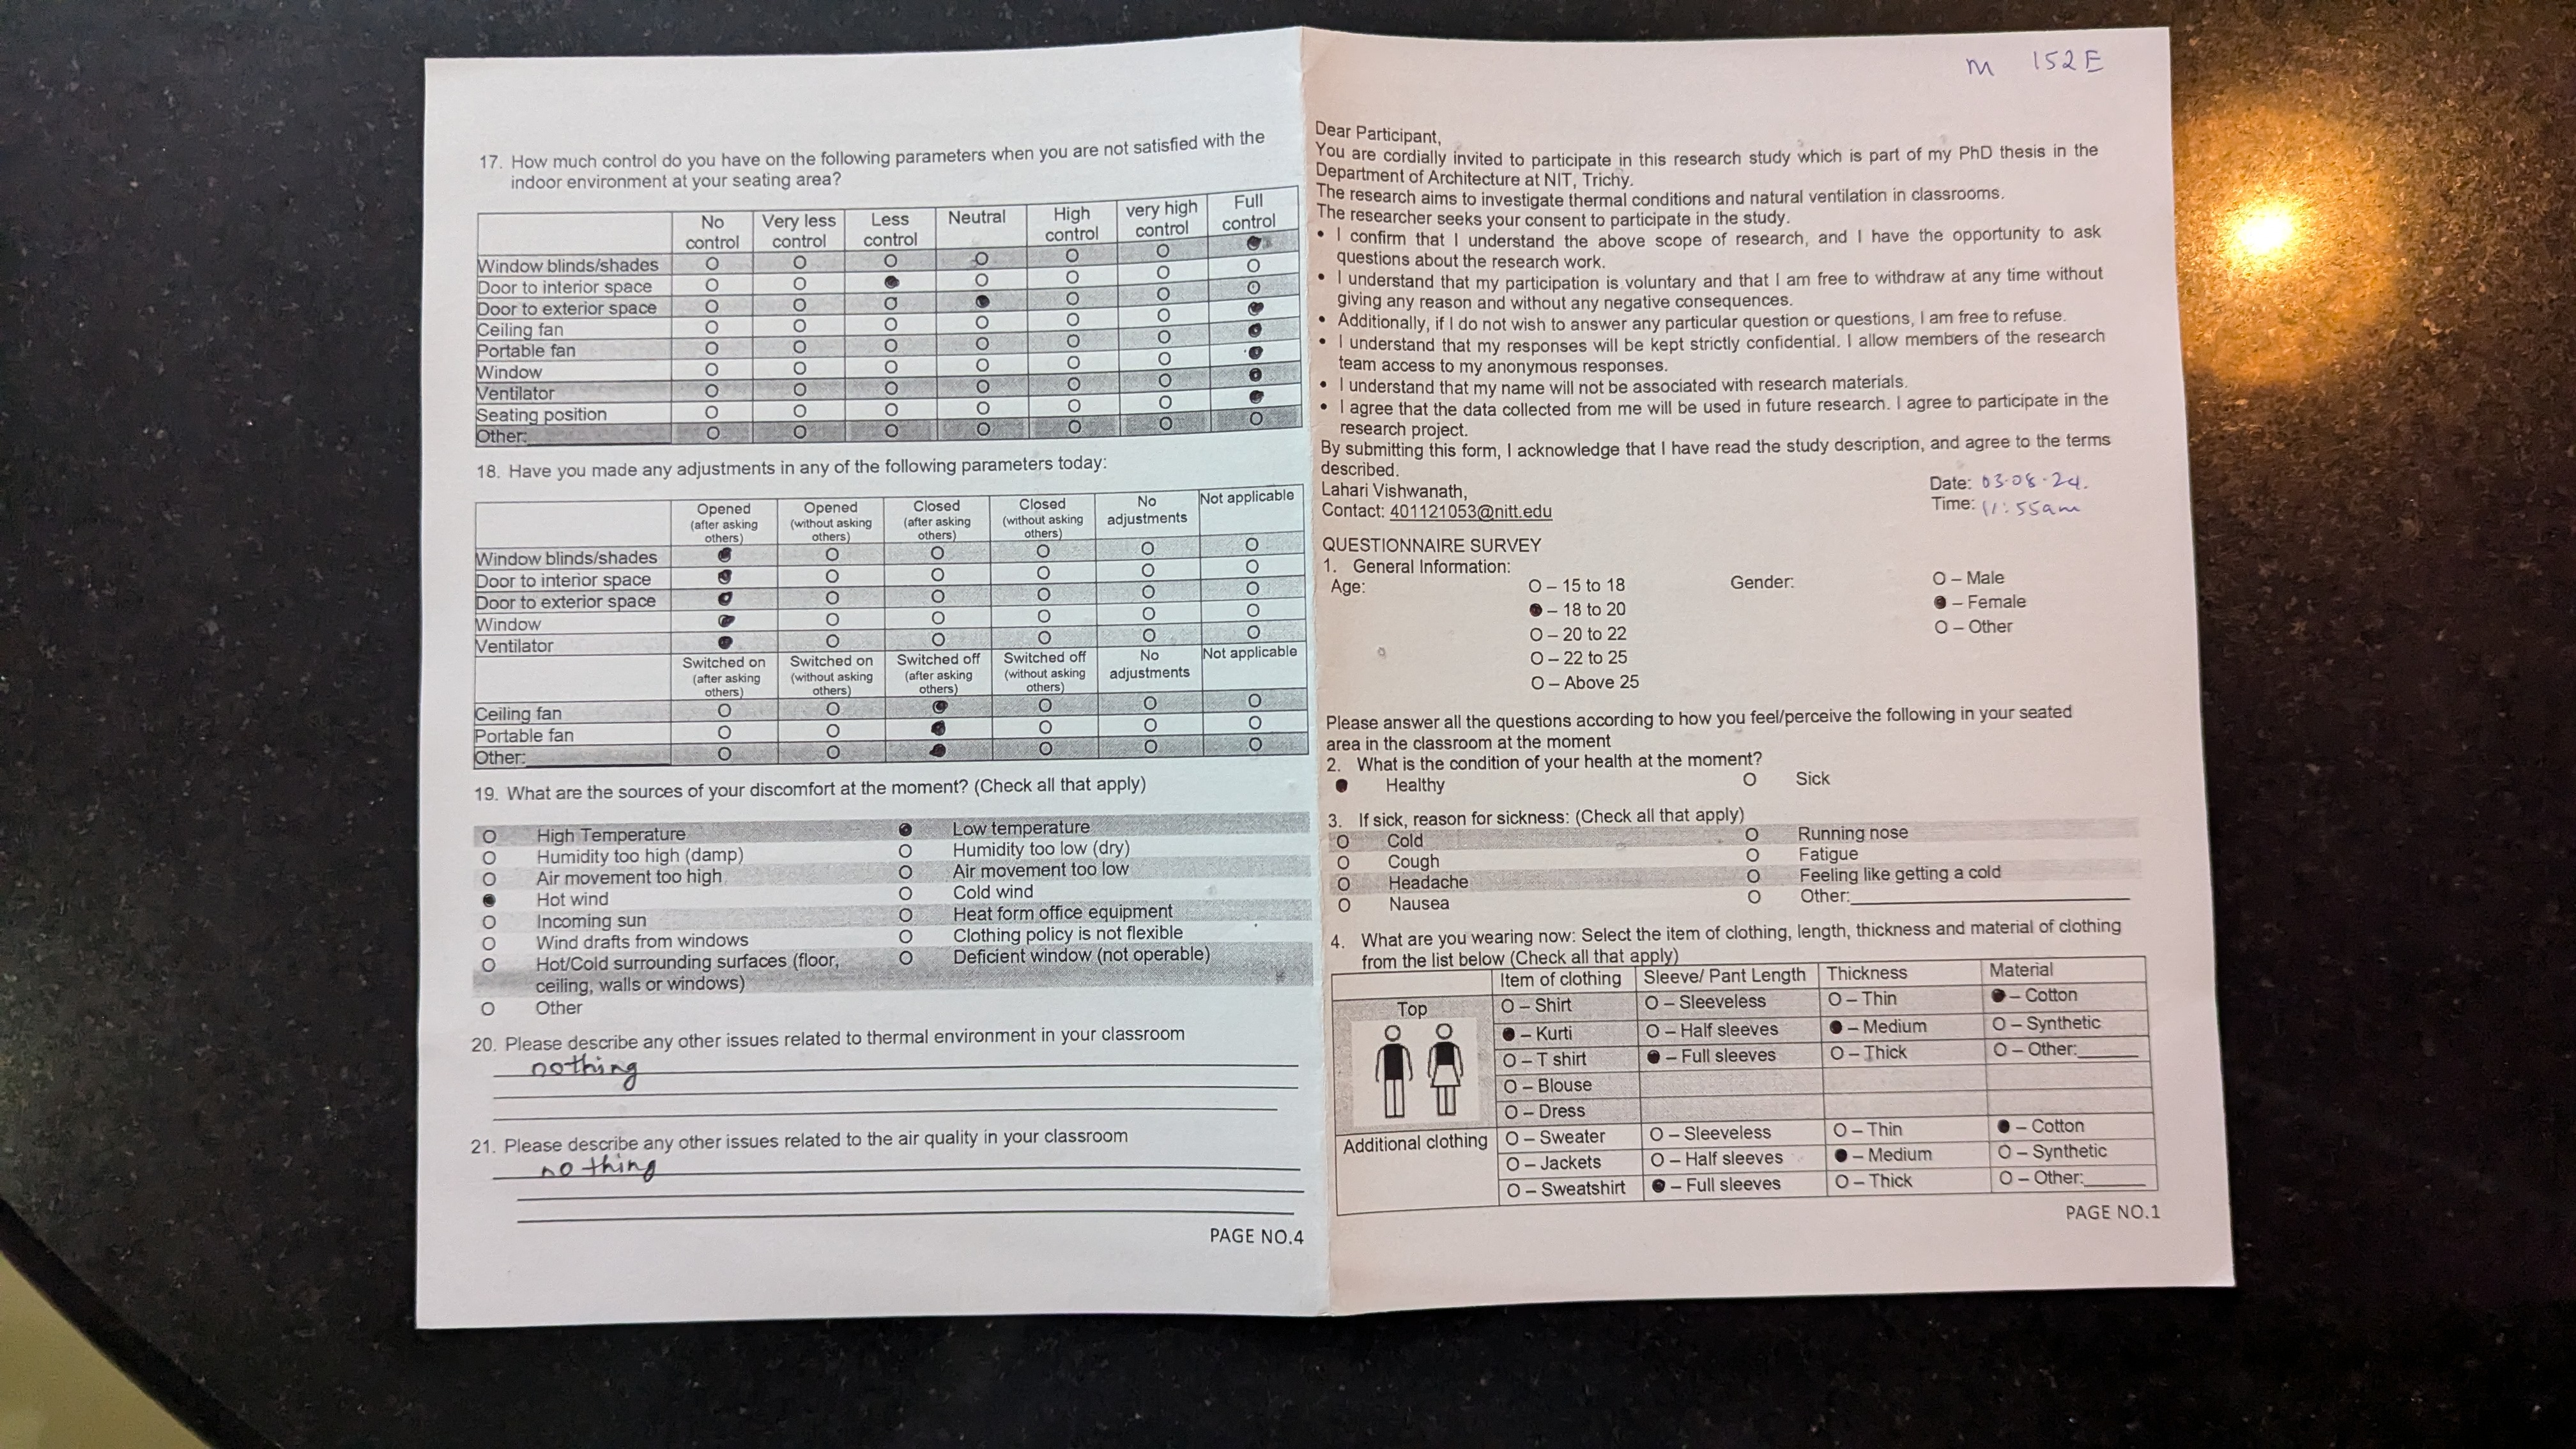 17. How much control do you have on the following parameters when you are not satisfied with the
indoor environment at your seating area?
No control Very less control Less control Neutral High control very high control Full control
Window blinds/shades O O O O O O ●
Door to interior space O O ● O O O O
Door to exterior space O O O ● O O O
Ceiling fan O O O O O O ●
Portable fan O O O O O O ●
Window O O O O O O ●
Ventilator O O O O O O ●
Seating position O O O O O O ●
Other: O O O O O O O
18. Have you made any adjustments in any of the following parameters today:
Opened (after asking others) Opened (without asking others) Closed (after asking others) Closed (without asking others) No adjustments Not applicable
Window blinds/shades ● O O O O O
Door to interior space ● O O O O O
Door to exterior space ● O O O O O
Window ● O O O O O
Ventilator ● O O O O O
Switched on (after asking others) Switched on (without asking others) Switched off (after asking others) Switched off (without asking others) No adjustments Not applicable
Ceiling fan O O ● O O O
Portable fan O O ● O O O
Other: O O ● O O O
19. What are the sources of your discomfort at the moment? (Check all that apply)
O High Temperature ● Low temperature
O Humidity too high (damp) O Humidity too low (dry)
O Air movement too high O Air movement too low
● Hot wind O Cold wind
O Incoming sun O Heat form office equipment
O Wind drafts from windows O Clothing policy is not flexible
O Hot/Cold surrounding surfaces (floor, O Deficient window (not operable)
ceiling, walls or windows)
O Other
20. Please describe any other issues related to thermal environment in your classroom
nothing
21. Please describe any other issues related to the air quality in your classroom
nothing
PAGE NO.4
m 152E
Dear Participant,
You are cordially invited to participate in this research study which is part of my PhD thesis in the
Department of Architecture at NIT, Trichy.
The research aims to investigate thermal conditions and natural ventilation in classrooms.
The researcher seeks your consent to participate in the study.
• I confirm that I understand the above scope of research, and I have the opportunity to ask
questions about the research work.
• I understand that my participation is voluntary and that I am free to withdraw at any time without
giving any reason and without any negative consequences.
• Additionally, if I do not wish to answer any particular question or questions, I am free to refuse.
• I understand that my responses will be kept strictly confidential. I allow members of the research
team access to my anonymous responses.
• I understand that my name will not be associated with research materials.
• I agree that the data collected from me will be used in future research. I agree to participate in the
research project.
By submitting this form, I acknowledge that I have read the study description, and agree to the terms
described.
Lahari Vishwanath, Date: 03.08.24.
Contact: 401121053@nitt.edu Time: 11:55am
QUESTIONNAIRE SURVEY
1. General Information:
Age: O – 15 to 18 Gender: O – Male
● – 18 to 20 ● – Female
O – 20 to 22 O – Other
O – 22 to 25
O – Above 25
Please answer all the questions according to how you feel/perceive the following in your seated
area in the classroom at the moment
2. What is the condition of your health at the moment?
● Healthy O Sick
3. If sick, reason for sickness: (Check all that apply)
O Cold O Running nose
O Cough O Fatigue
O Headache O Feeling like getting a cold
O Nausea O Other:
4. What are you wearing now: Select the item of clothing, length, thickness and material of clothing
from the list below (Check all that apply)
Item of clothing Sleeve/ Pant Length Thickness Material
Top O – Shirt O – Sleeveless O – Thin ● – Cotton
● – Kurti O – Half sleeves ● – Medium O – Synthetic
O – T shirt ● – Full sleeves O – Thick O – Other:
O – Blouse
O – Dress
Additional clothing O – Sweater O – Sleeveless O – Thin ● – Cotton
O – Jackets O – Half sleeves ● – Medium O – Synthetic
O – Sweatshirt ● – Full sleeves O – Thick O – Other:
PAGE NO.1